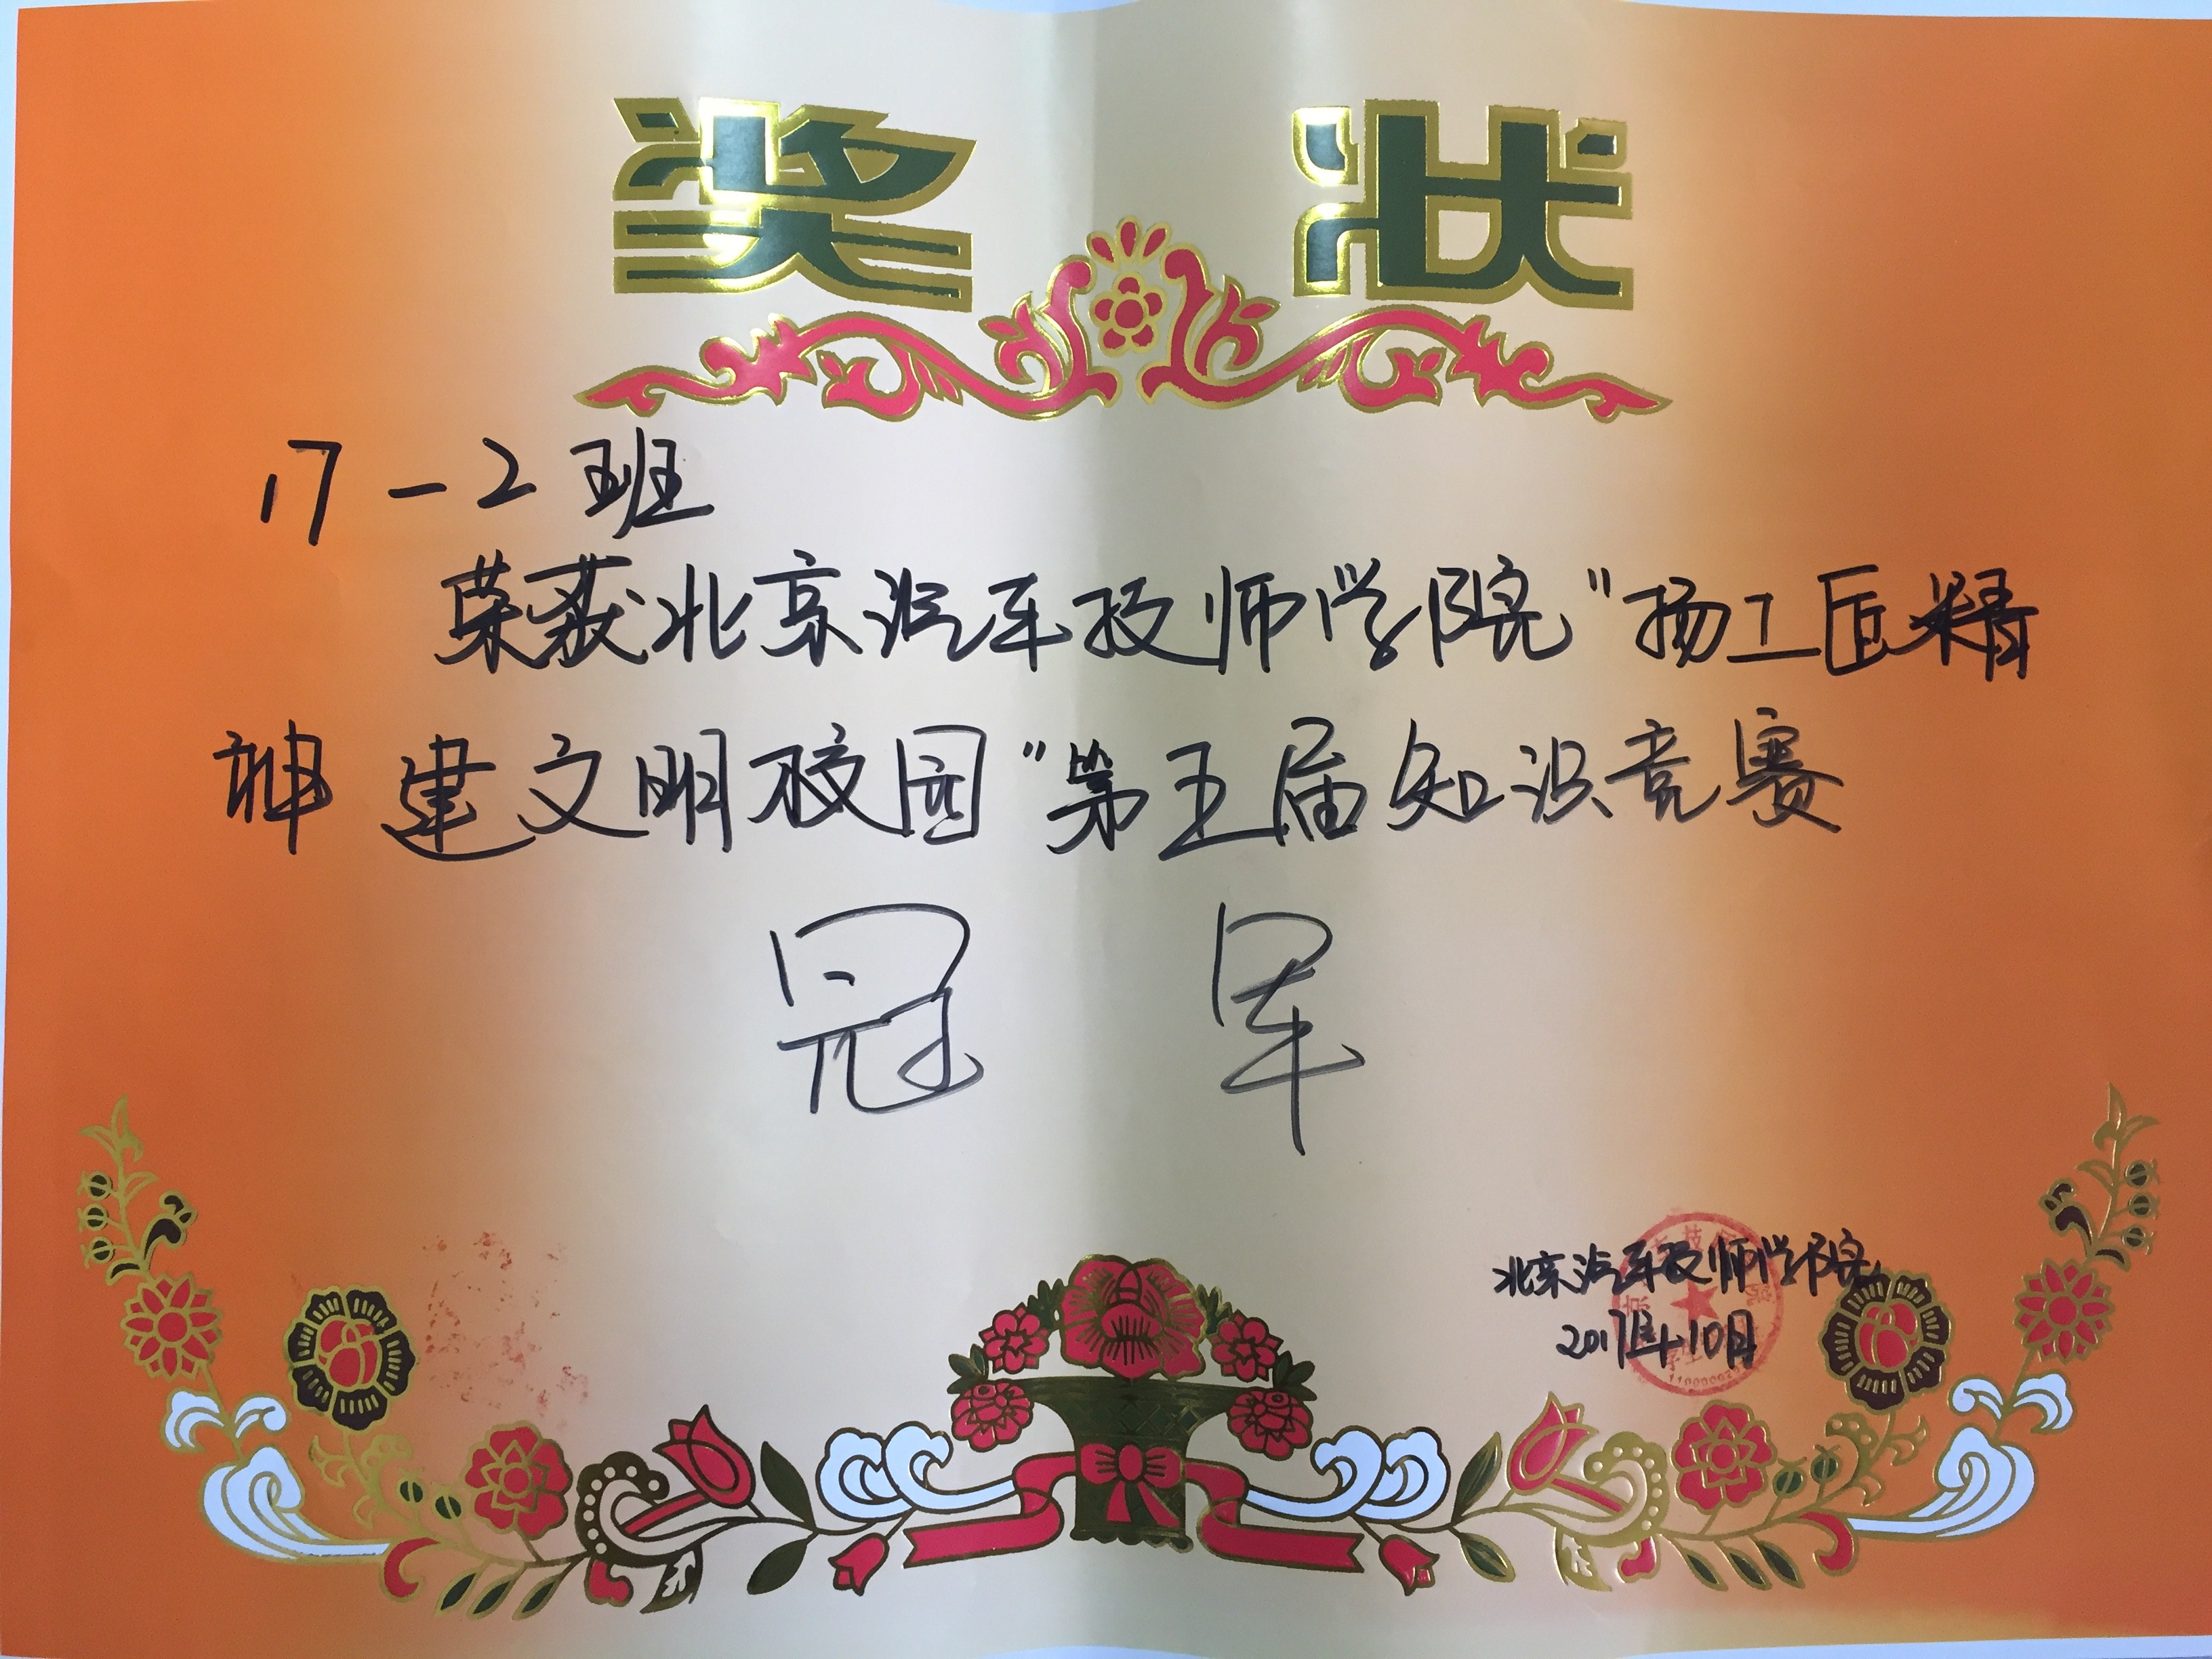 奖状
17-2班
荣获北京汽车技师学院"扬工匠精
神 建文明校园"第五届知识竞赛
冠军
北京汽车技师学院
2017年10月